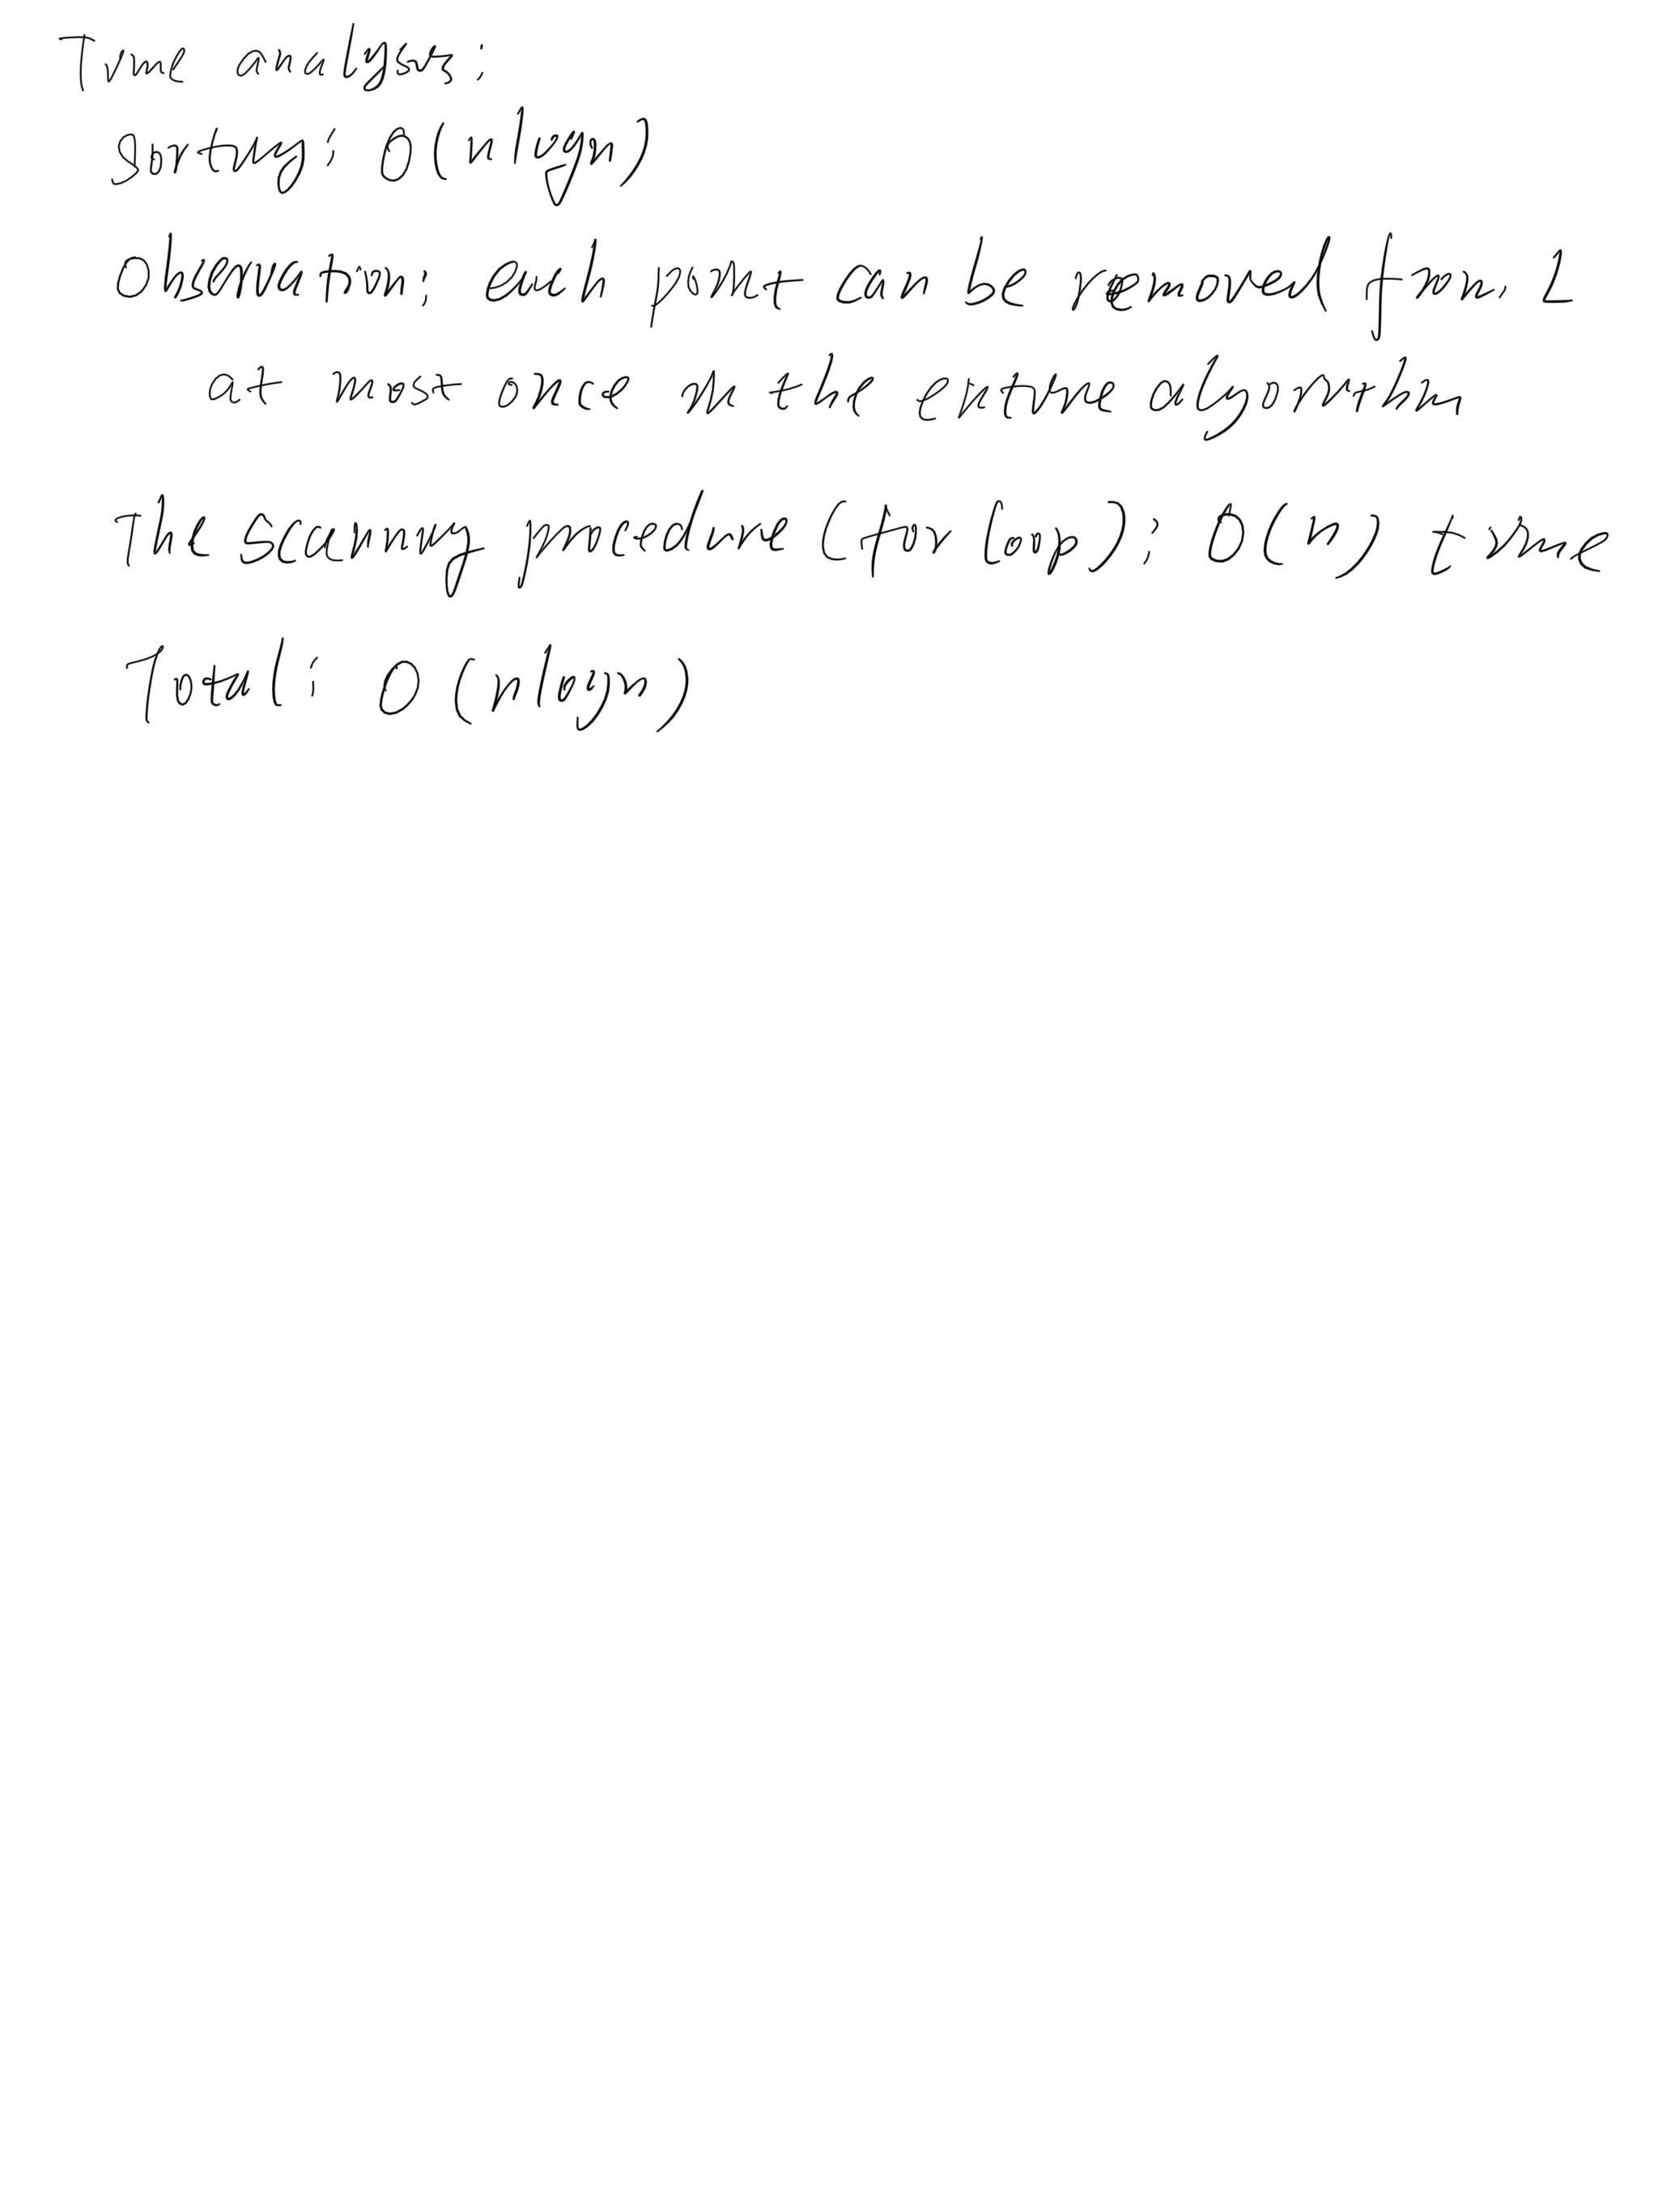 Time analysis:
Sorting: O(nlogn)
Observation: each point can be removed from L
at most once in the entire algorithm
The scanning procedure (for loop): O(n) time
Total: O(nlogn)